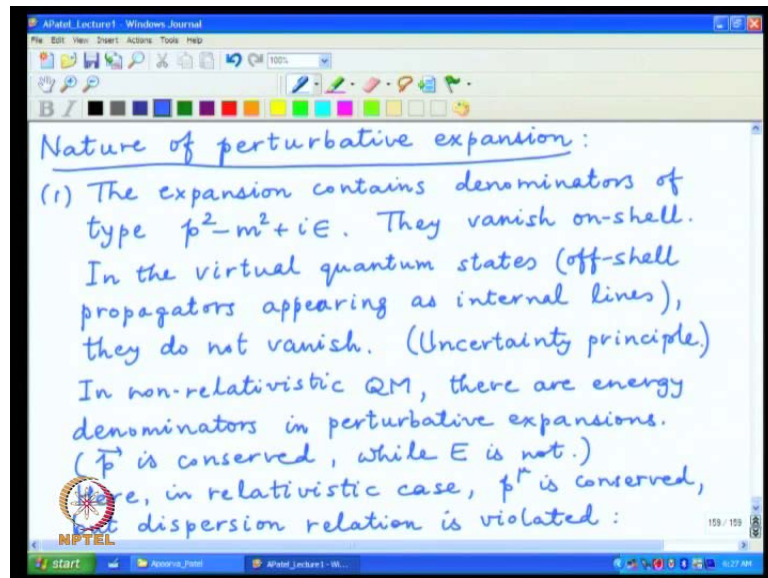 APatel_Lecture1 - Windows Journal
File Edit View Insert Actions Tools Help
100%
B I
Nature of perturbative expansion :
(1) The expansion contains denominators of
type p² - m² + iϵ. They vanish on-shell.
In the virtual quantum states (off-shell
propagators appearing as internal lines),
they do not vanish. (Uncertainty principle.)
In non-relativistic QM, there are energy
denominators in perturbative expansions.
(p⃗ is conserved, while E is not.)
Here, in relativistic case, p^μ is conserved,
but dispersion relation is violated :
159 / 159
NPTEL
start Apoorva_Patel APatel_Lecture1 - Wi... 6:27 AM